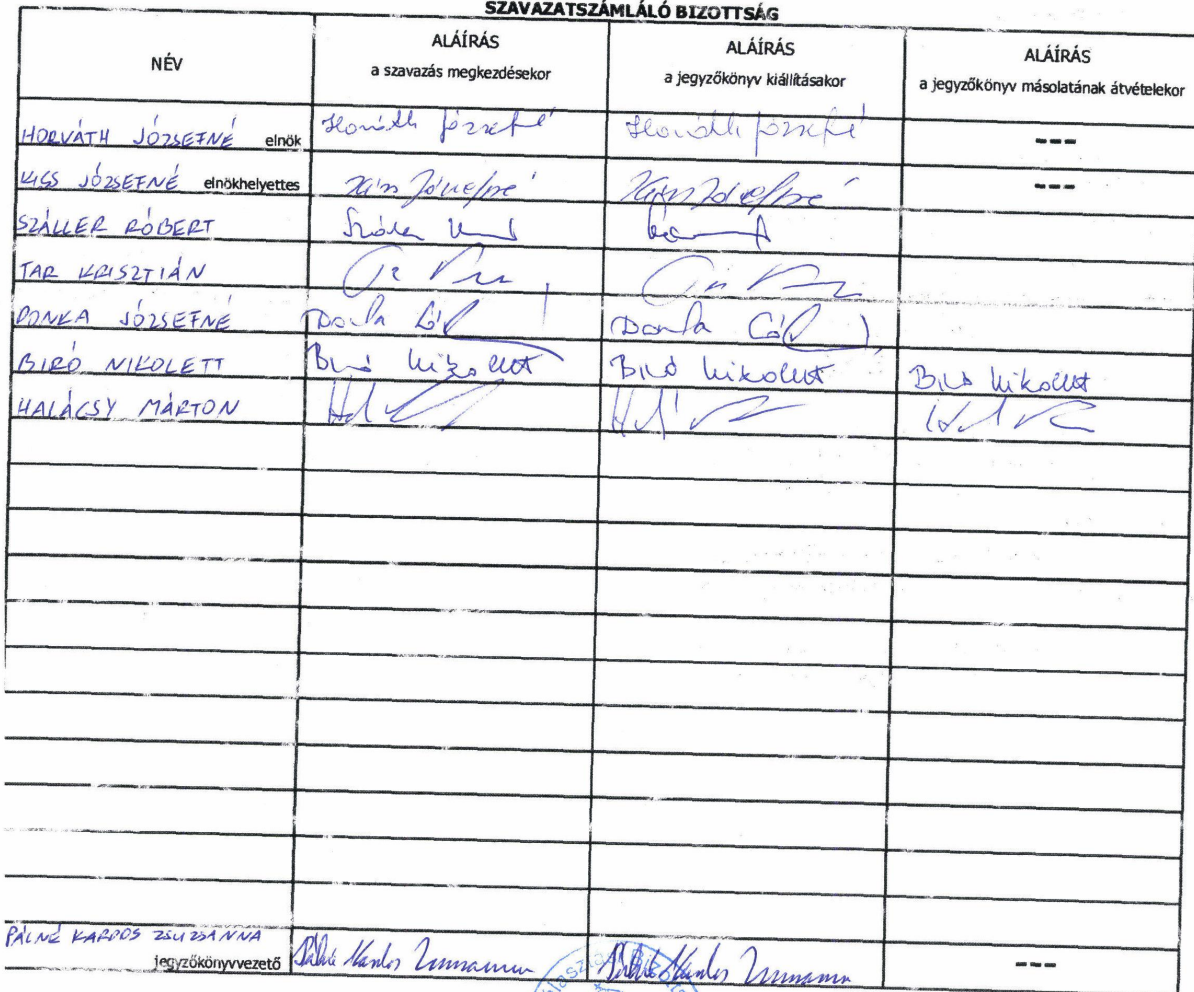 SZAVAZATSZÁMLÁLÓ BIZOTTSÁG
NÉV
ALÁÍRÁS
a szavazás megkezdésekor
ALÁÍRÁS
a jegyzőkönyv kiállításakor
ALÁÍRÁS
a jegyzőkönyv másolatának átvételekor
HORVÁTH JÓZSEFNÉ elnök Horváth Józsefné Horváth Józsefné ---
KISS JÓZSEFNÉ elnökhelyettes Kiss Józsefné Kiss Józsefné ---
SZÁLLER RÓBERT
TAR KRISZTIÁN
DONKA JÓZSEFNÉ Donka Donka
BIRÓ NIKOLETT Biró Nikolett Biró Nikolett Biró Nikolett
HALÁCSY MÁRTON
PÁLNÉ KARDOS ZSUZSANNA
jegyzőkönyvvezető Pálné Kardos Zsuzsanna Pálné Kardos Zsuzsanna ---